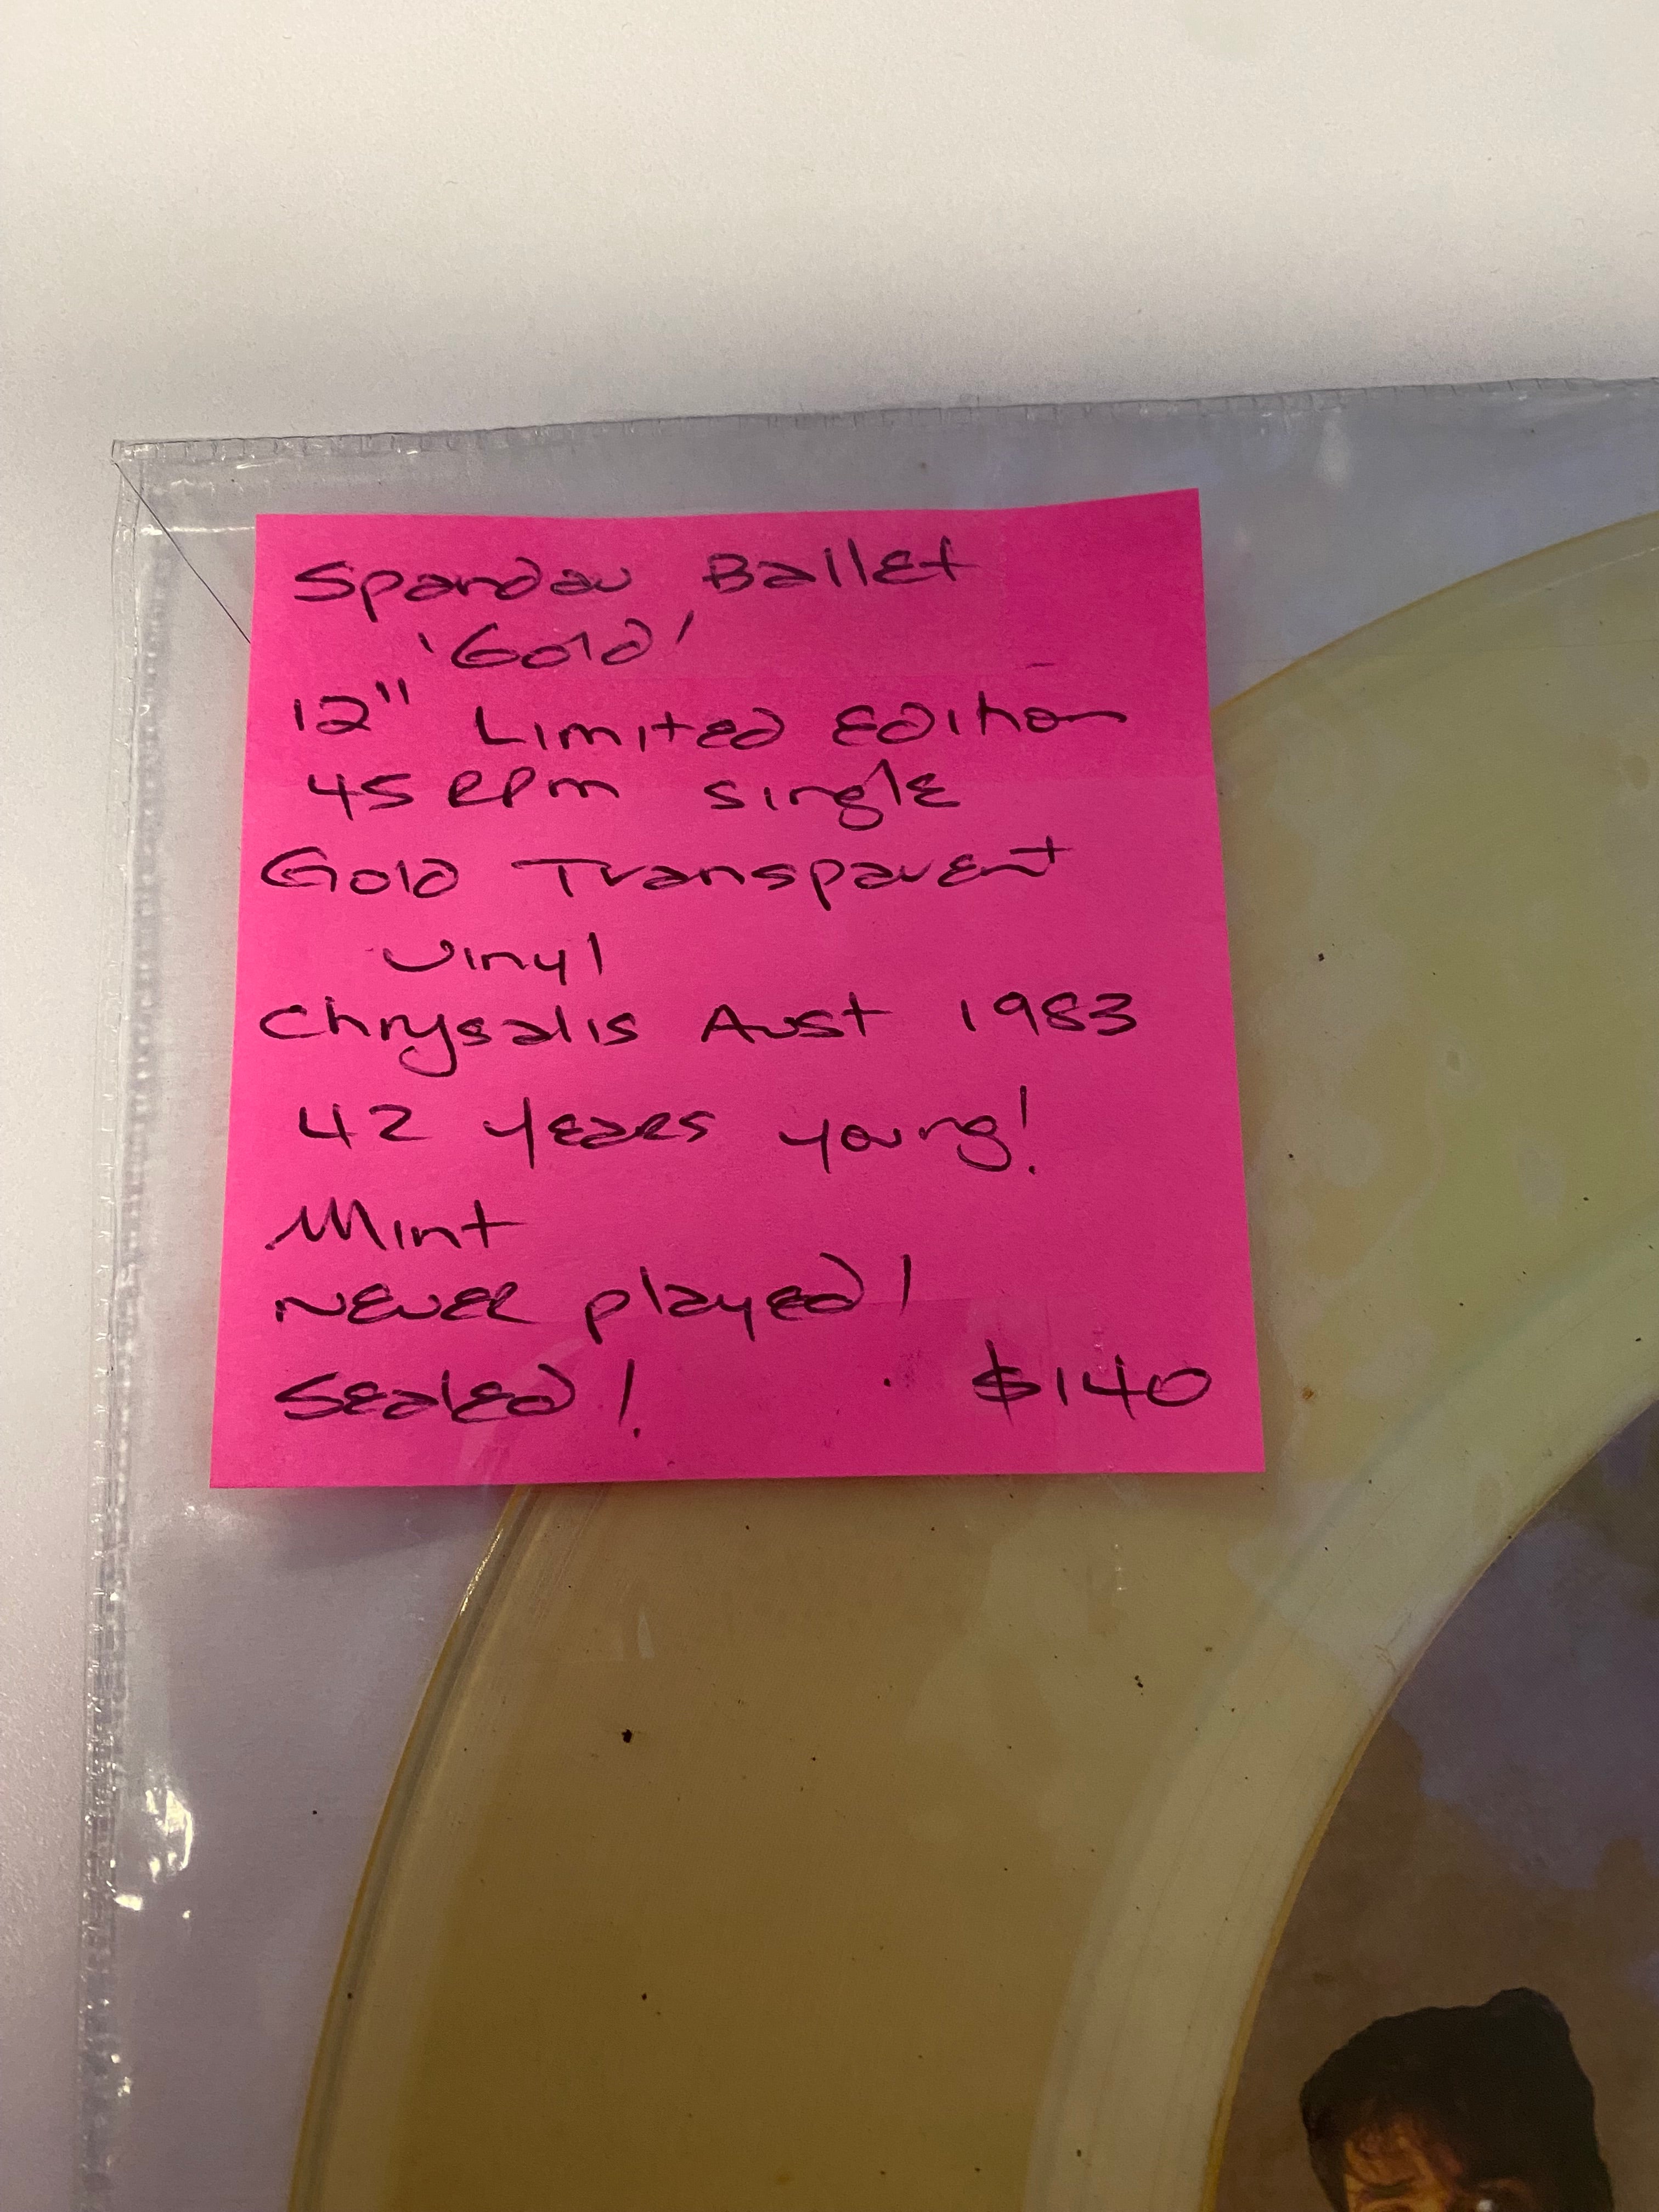 Spandau Ballet
'Gold'
12" Limited Edition
45 RPM single
Gold Transparent
Vinyl
Chrysalis Aust 1983
42 years young!
Mint
Never played!
Sealed! $140